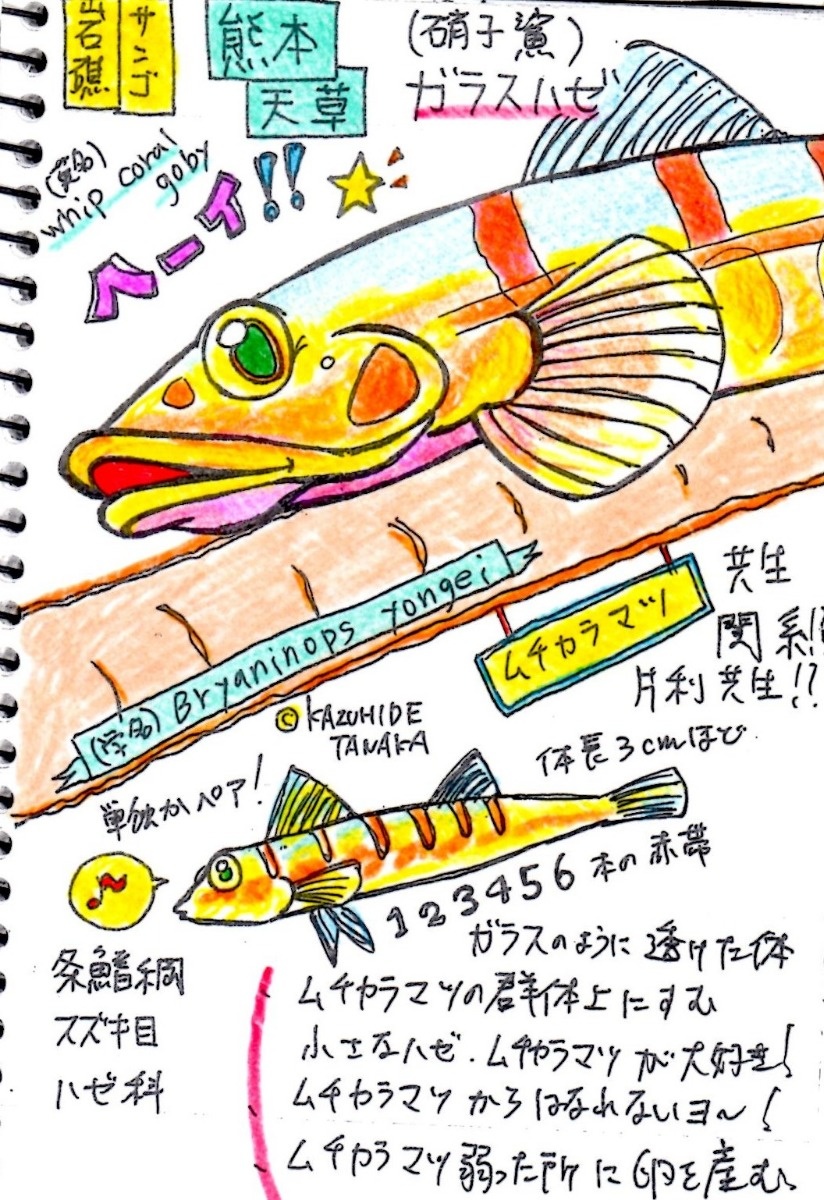 岩礁
サンゴ
熊本
天草
(硝子鯊)
ガラスハゼ
(英名)
whip coral
goby
ヘーイ!!
(学名) Bryaninops yongei
ムチカラマツ
共生
関係!!
片利共生!?
© KAZUHIDE
TANAKA
体長3cmほど
単独かペア!
123456本の赤帯
ガラスのように透けた体
条鰭綱
スズキ目
ハゼ科
ムチカラマツの群体上にすむ
小さなハゼ.ムチカラマツが大好き!
ムチカラマツからはなれないヨ〜!
ムチカラマツ弱った所に卵を産む